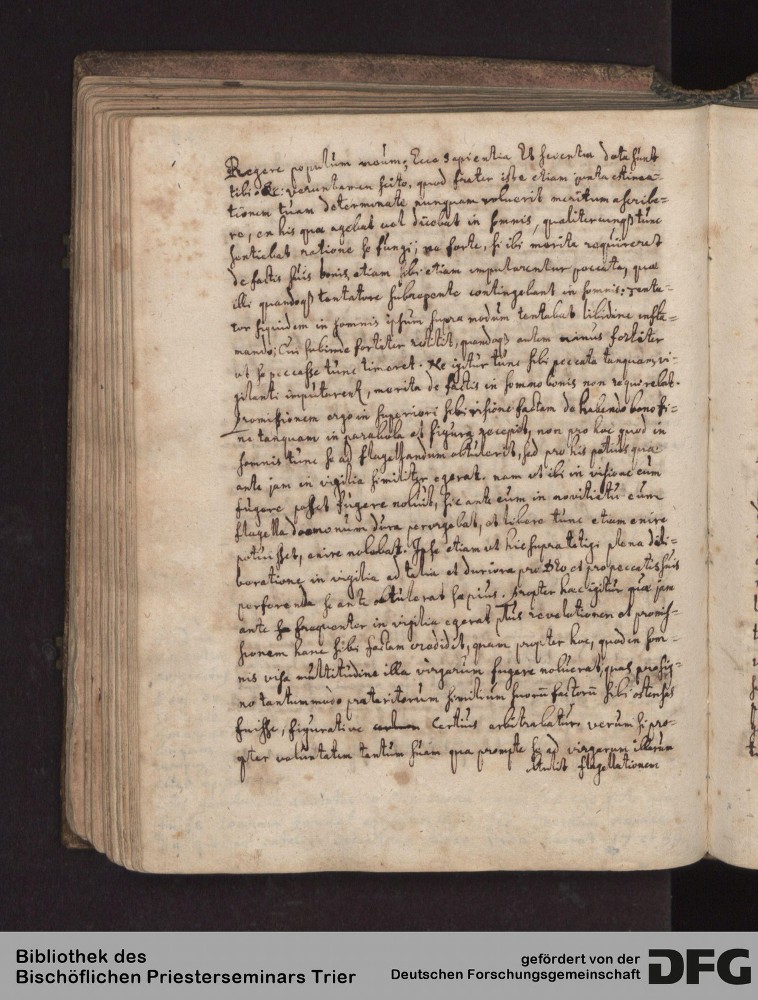 Regere populum meum; Ecce sapientia Et scientia data sunt
tibi &c: veruntamen scito, quod frater iste etiam juxta estima=
tionem tuam determinate nunquam voluerit meritum ascribe=
re, ex his quae agebat vel dicebat in somnis, qualitercunqȝ tunc
sentiebat ratione se fungi; ne forte, si ibi merita requireret
de factis suis bonis, etiam sibi etiam imputarentur peccata, quae
illi quandoqȝ tentatore subrepente contingebant in somnis; Tenta=
tor siquidem in somnis ipsum supra modum tentabat libidine infla=
mando; Cui subinde fortiter restitit, quandoqȝ autem minus fortiter
ut se peccasse tunc timeret. Ne igitur tunc sibi peccata tanquam vi=
gilanti imputarent, merita de factis in somno bonis non requirebat.
Promissionem ergo in superiori sibi visione factam de habendo bono fi=
ne tanquam in parabola et figura recepit, non pro hoc quod in
somnis tunc se ad flagellandum obtulerit, sed pro his potius quae
ante jam in vigilia similiter egerat. nam ut ibi in visione cum
fugere posset fugere noluit, sic ante cum in novitiatu cum
flagella daemonum dura perurgebat, et libere tunc etiam exire
potuisset, exire nolebat. Ipse etiam ut hic supra tetigi plena deli=
beratione in vigilia ad talia et duriora pro Deo et pro peccatis suis
perferenda se ante obtulerat saepius. propter haec igitur quae jam
ante se frequenter in vigilia egerat plus revelationem et promis=
sionem hanc sibi factam credidit, quam propter hoc, quod in som=
nis visa multitudine illa virgarum fugere noluerat, quas pro sig=
no tantummodo praeteritorum similium suorum factorum sibi ostensas
fuisse, figurative certius arbitrabatur, verum si pro=
pter voluntatem tantum suam qua prompte se ad virgarum illarum
obtulit flagellationem
Bibliothek des
Bischöflichen Priesterseminars Trier
gefördert von der
Deutschen Forschungsgemeinschaft
DFG